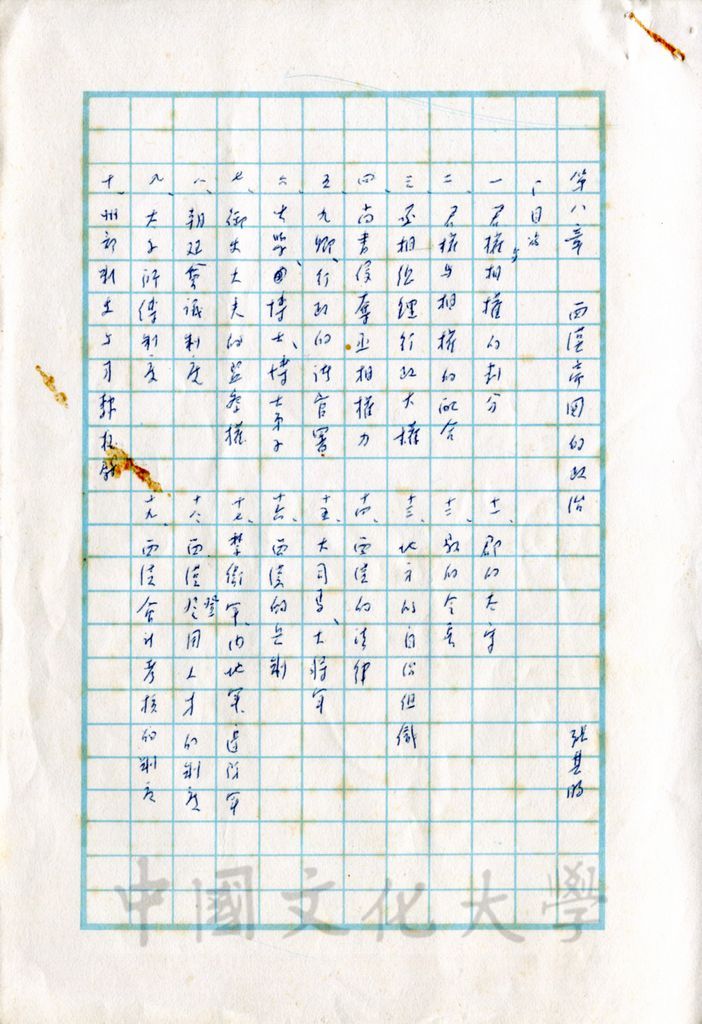 第八章 西漢帝國的政治 張其昀
「目次」
一、君權與相權的劃分
二、君權與相權的配合
三、丞相總經行政大權
四、尚書侵奪丞相權力
五、九卿、行政的諸官署
六、太學、博士、博士弟子
七、御史大夫的監察權
八、朝廷會議制度
九、太子師傅制度
十、州部刺史與司隸校尉
十一、郡的太守
十二、縣的令長
十三、地方的自治組織
十四、西漢的法律
十五、大司馬、大將軍
十六、西漢的兵制
十七、禁衛軍、內地軍、邊防軍
十八、西漢登用人才的制度
十九、西漢會計考核的制度
中國文化大學